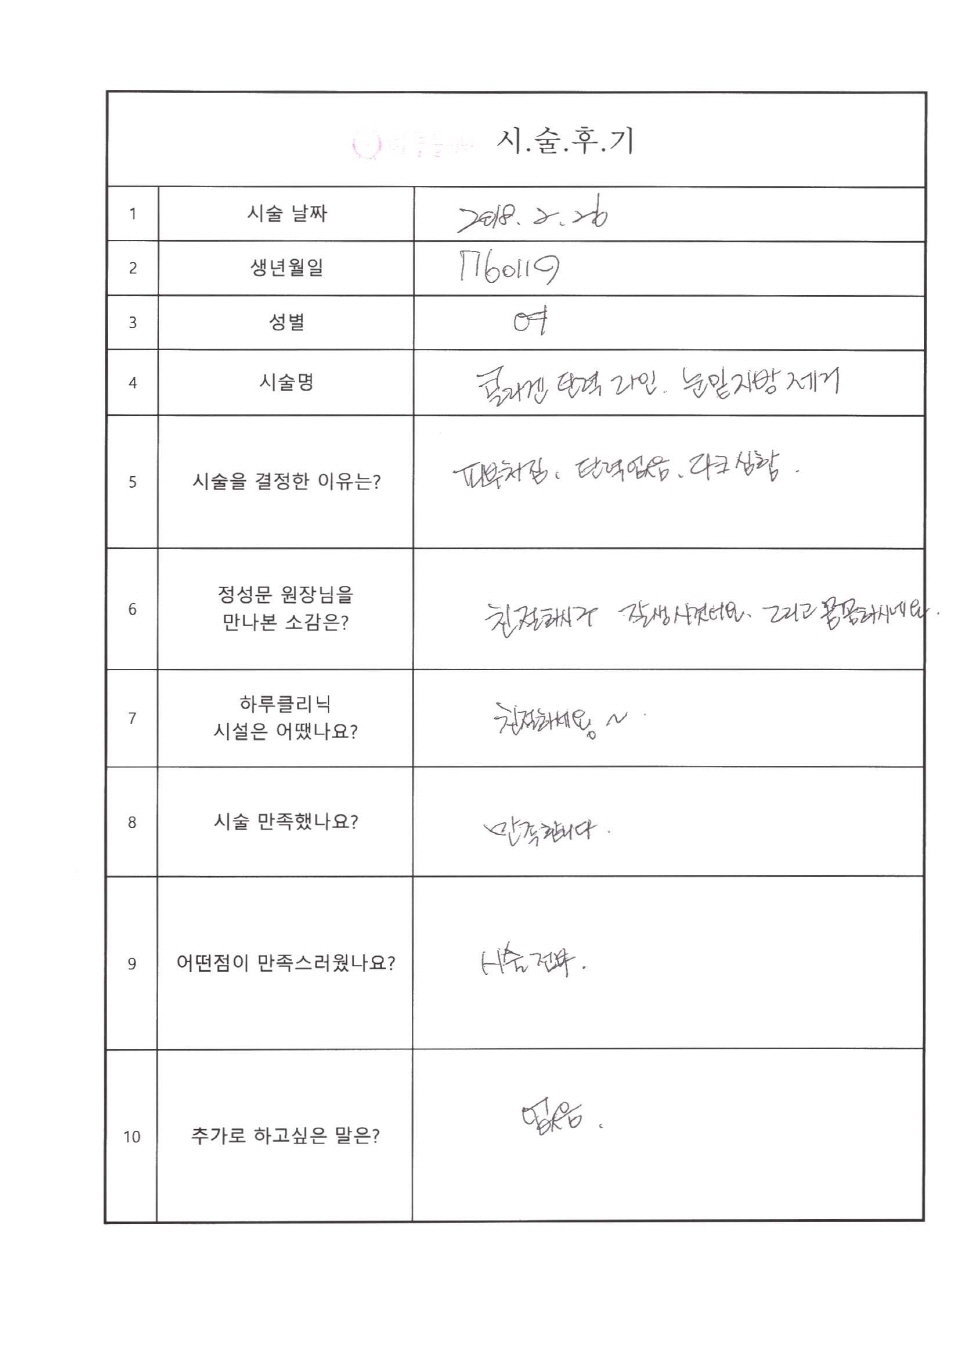 시.술.후.기
1 시술 날짜 2018. 2. 26
2 생년월일 760119
3 성별 여
4 시술명 콜라겐 탄력 라인. 눈밑지방 제거
5 시술을 결정한 이유는? 피부처짐, 탄력없음, 다크심함.
6 정성문 원장님을
만나본 소감은? 친절하시구 잘생시켰더요. 그리고 꼼꼼하시네요.
7 하루클리닉
시설은 어땠나요? 친절하세용~
8 시술 만족했나요? 만족합니다.
9 어떤점이 만족스러웠나요? 시술 전부.
10 추가로 하고싶은 말은? 없음.